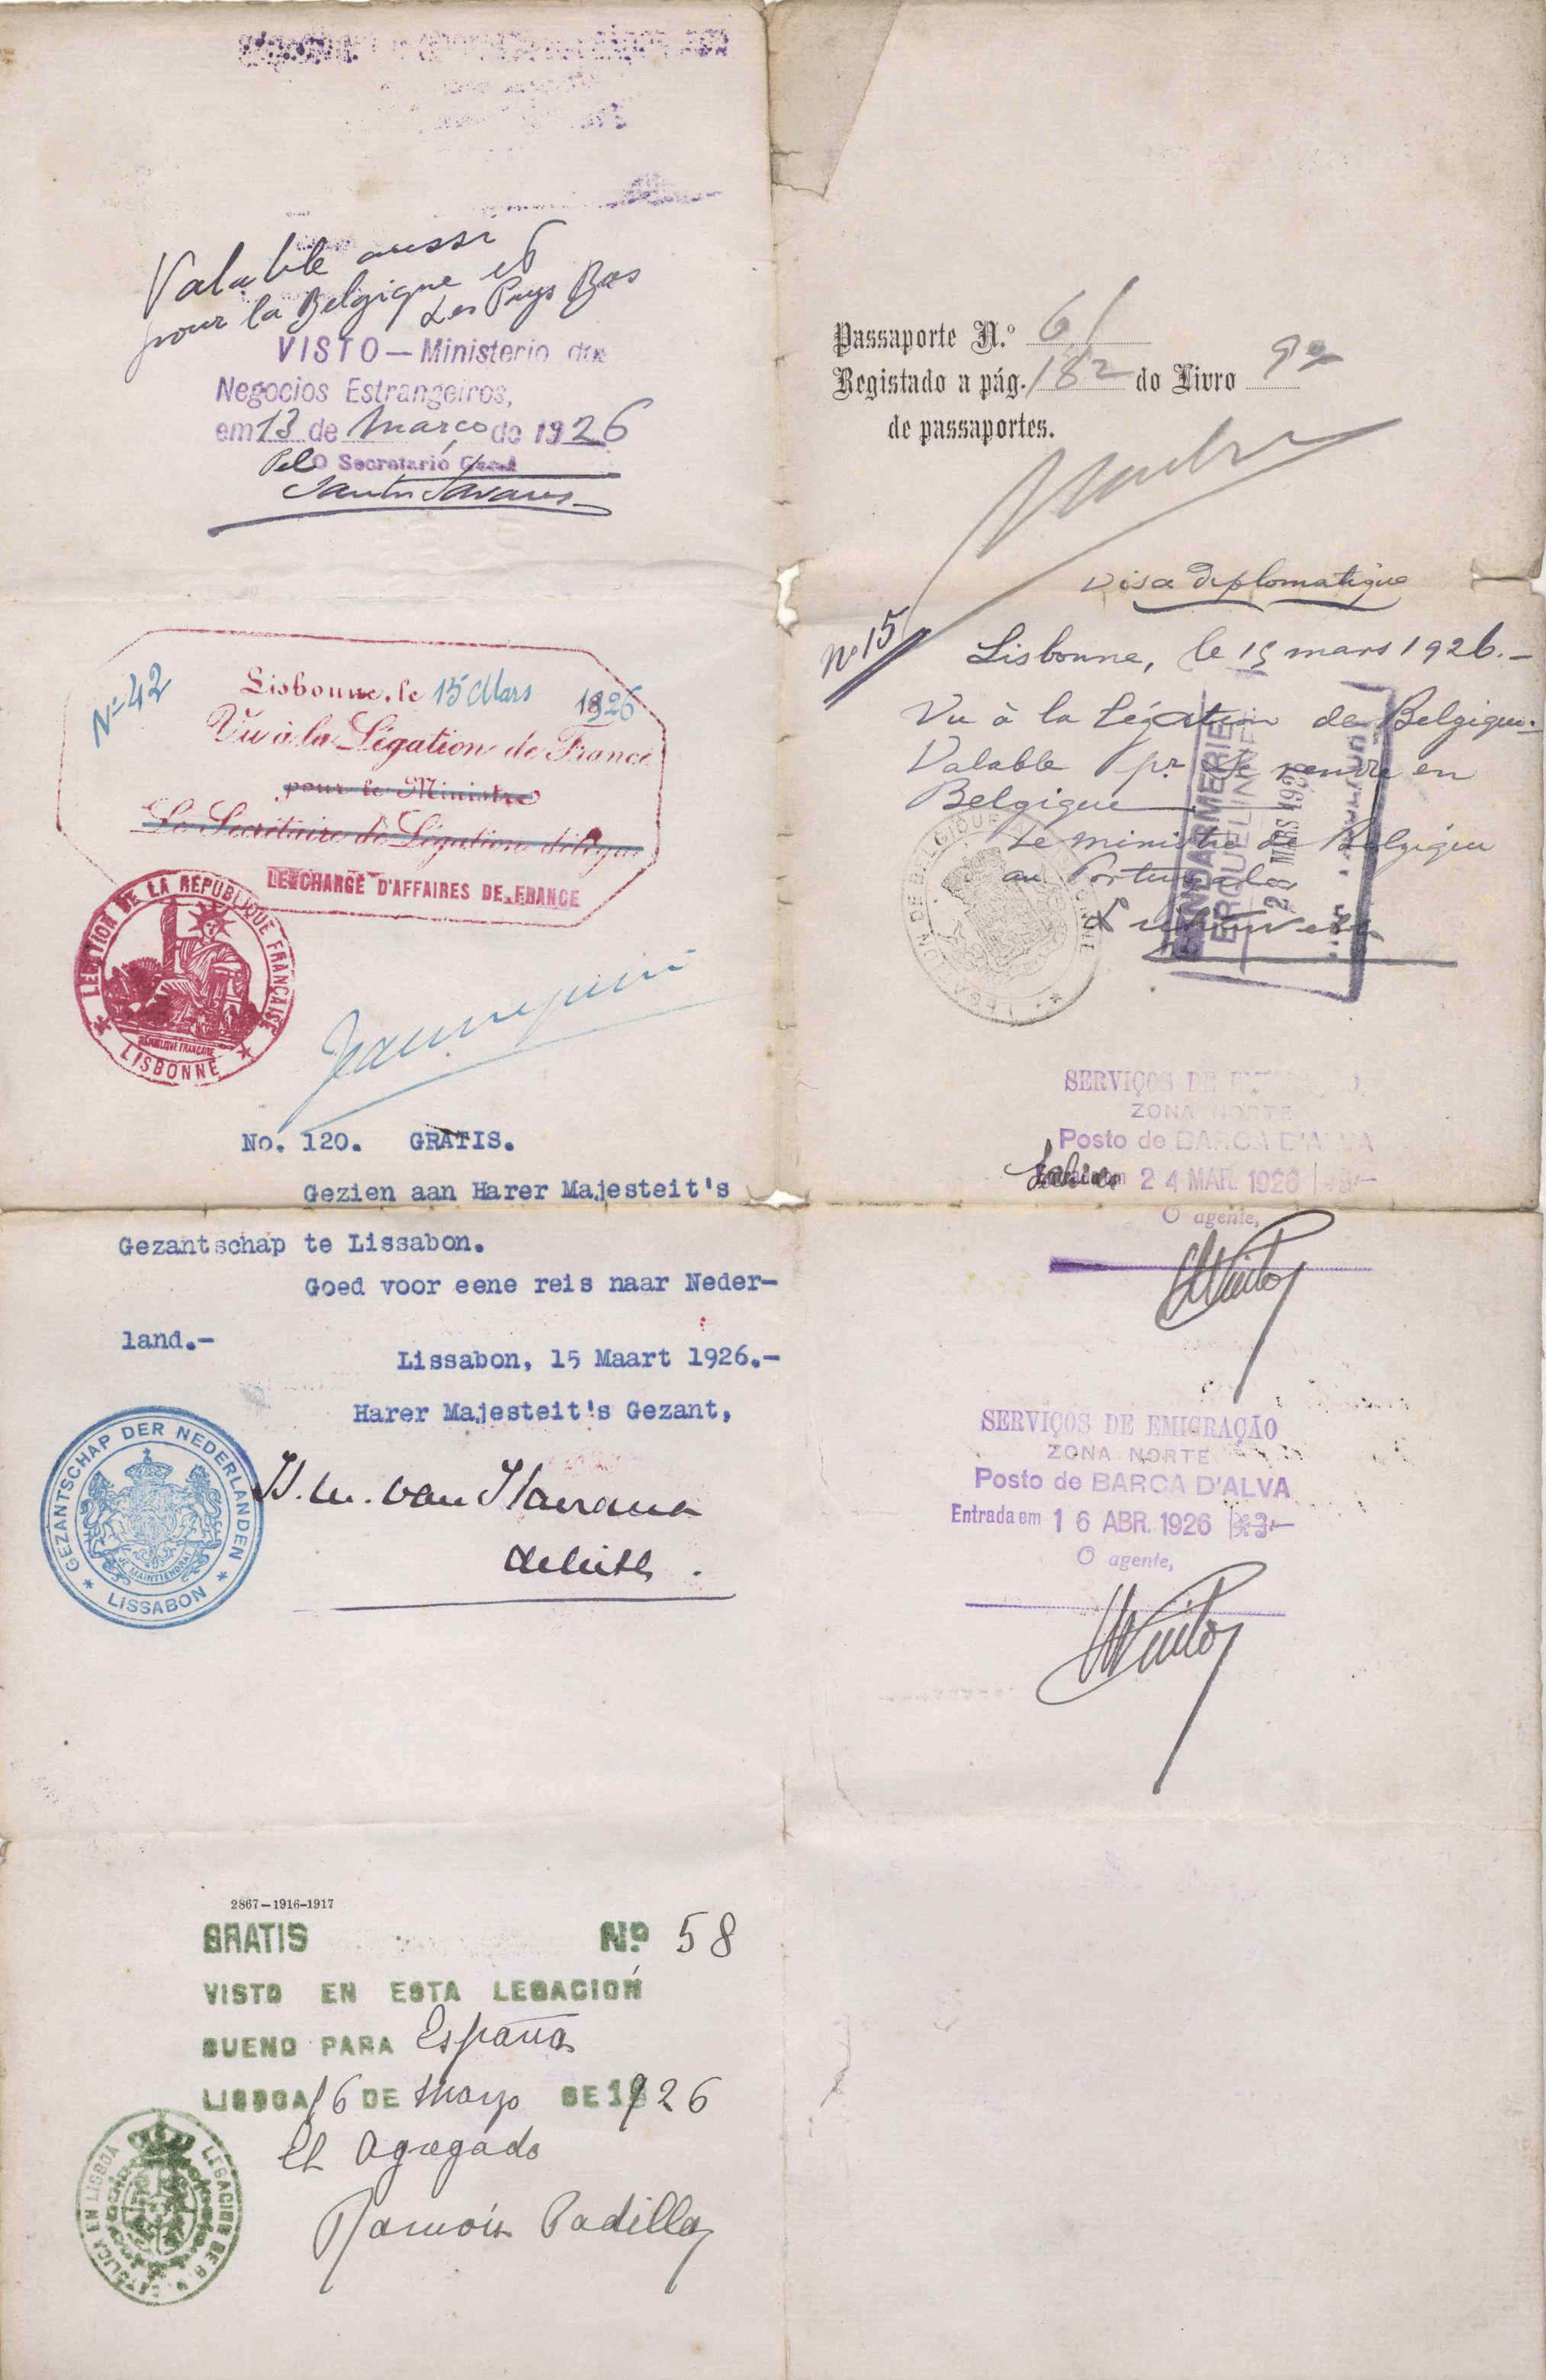 Valable aussi
pour la Belgique et
Les Pays Bas
VISTO — Ministerio dos
Negocios Estrangeiros,
em 13 de Março de 1926
Pelo Secretario Geral
Nº 42
Lisbonne, le 15 Mars 1926
Vu à la Légation de France
pour le Ministre
Le Secrétaire de Légation délégué
LE CHARGÉ D'AFFAIRES DE FRANCE
LEGATION DE LA REPUBLIQUE FRANÇAISE
REPUBLIQUE FRANÇAISE
LISBONNE
No. 120. GRATIS.
Gezien aan Harer Majesteit's
Gezantschap te Lissabon.
Goed voor eene reis naar Neder-
land.-
Lissabon, 15 Maart 1926.-
Harer Majesteit's Gezant,
GEZANTSCHAP DER NEDERLANDEN
JE MAINTIENDRAI
LISSABON
2867-1916-1917
GRATIS Nº 58
VISTO EN ESTA LEGACIÓN
BUENO PARA España
LISBOA 16 DE Marzo DE 1926
El Agregado
Ramón Padilla
LEGACION DE S. M. CATOLICA EN LISBOA
Passaporte N.º 61
Registado a pág. 182 do Livro 9º
de passaportes.
Visa diplomatique
Nº 15
Lisbonne, le 15 mars 1926.-
Vu à la Légation de Belgique.
Valable pr se rendre en
Belgique
Le ministre de Belgique
au Portugal
LEGATION DE BELGIQUE
GENDARMERIE
ERQUELINNES
MARS 192
SERVIÇOS DE
ZONA NORTE
Posto de BARCA D'ALVA
Sahida em 24 MAR. 1926
O agente,
SERVIÇOS DE EMIGRAÇÃO
ZONA NORTE
Posto de BARCA D'ALVA
Entrada em 16 ABR. 1926
O agente,